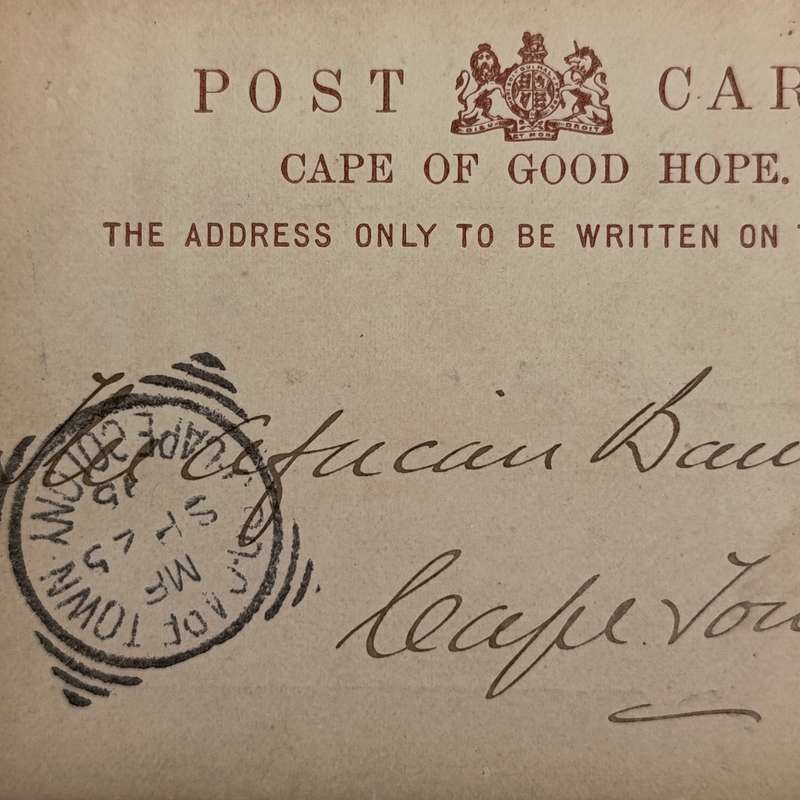 POST CAR
DIEU ET MON DROIT
CAPE OF GOOD HOPE.
THE ADDRESS ONLY TO BE WRITTEN ON T
The African Ban
Cape Tow
CAPE TOWN
CAPE COLONY
MR
95